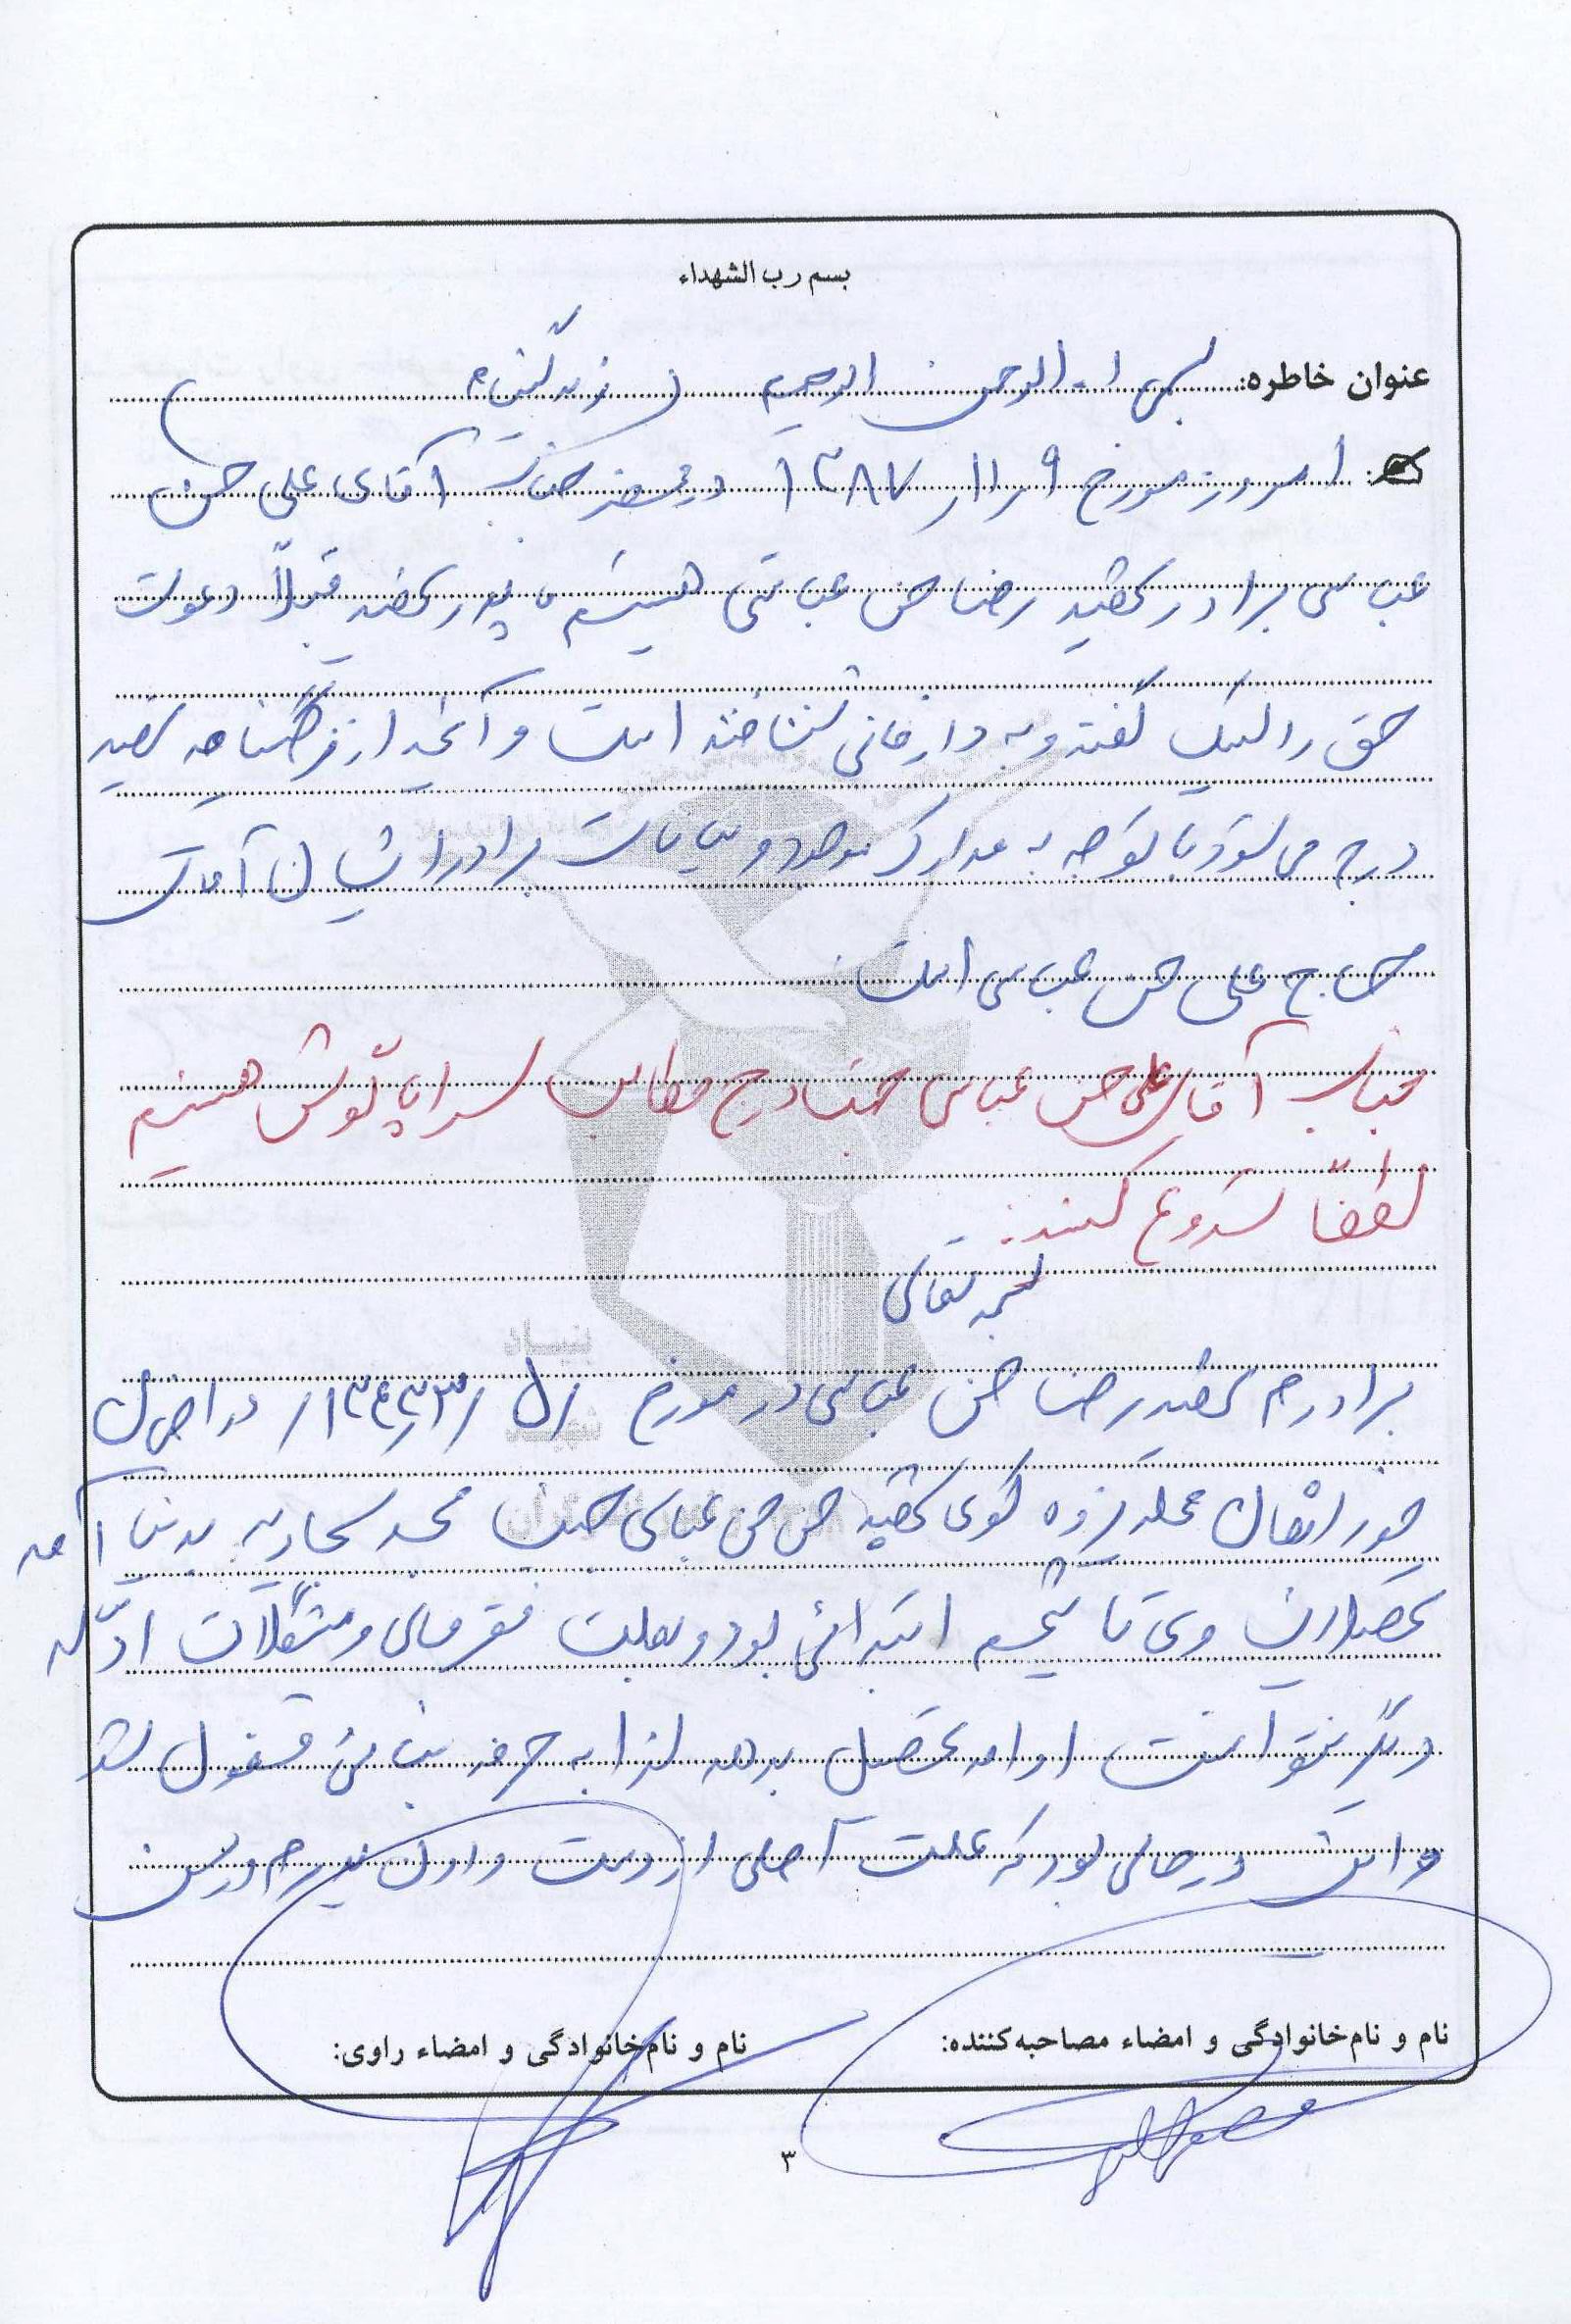 بسم رب الشهداء
عنوان خاطره: بسم ا.. الرحمن الرحیم (زندگینامه)
امروز مورخ ۱۳۸۷/۱۱/۹ در محضر جناب آقای علی حسن
عباسی برادر شهید رضا حسن عباسی هستیم، پدر شهید قبلاً دعوت
حق را لبیک گفته و به دار فانی شتافته است و آنچه از فرهنگنامه شهید
درج می شود با توجه به مدارک موجود و بیانات برادر ایشان آقای
حاج علی حسن عباسی است.
جناب آقای علی حسن عباسی جهت درج مطالب سراپا گوش هستیم
لطفاً شروع کنید:
بسمه تعالی
برادرم شهید رضا حسن عباسی در مورخ ۱۳۴۳/۵/ در
محله کوی شهید حسن عباسی جنب مسجد سجادیه بدنیا آمد
تحصیلات وی تا پنجم ابتدائی بود و بعلت فقر مالی و مشکلات
دیگر نتوانست ادامه تحصیل بدهد لذا به حرفه بنائی مشغول شد
و این در حالی بود که علت اصلی از دست دادن پدرم در سن
نام و نام‌خانوادگی و امضاء مصاحبه‌کننده:
نام و نام‌خانوادگی و امضاء راوی:
۳
بنیاد
شهید